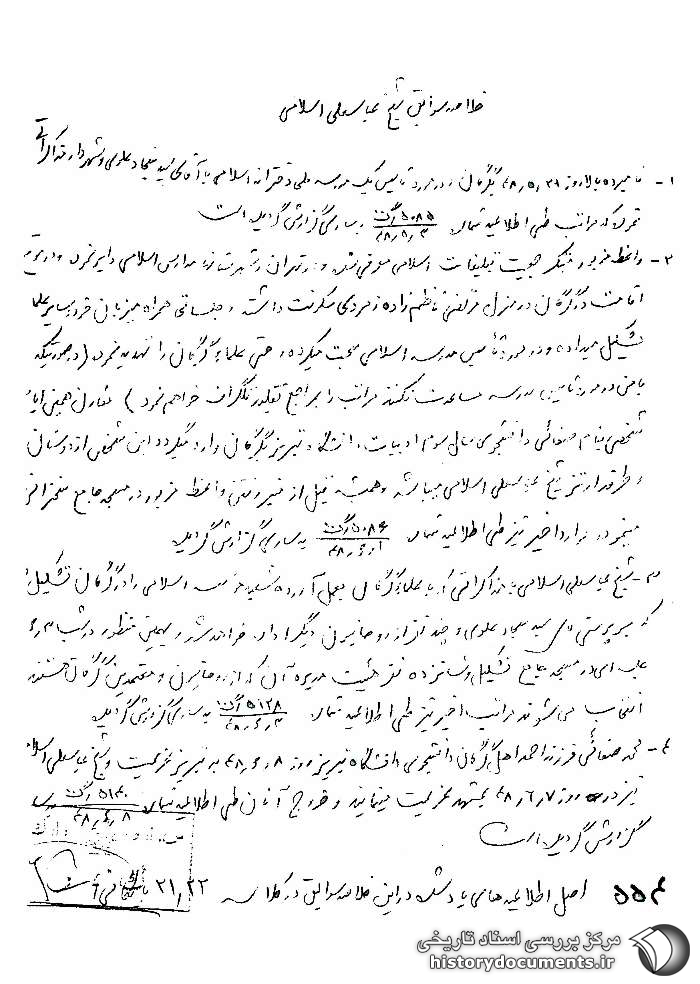 خلاصه سوابق شیخ عباسعلی اسلامی
۱- نامبرده بالا روز ۴۸٫۵٫۳۱ بگرگان و در مورد تأسیس یک مدرسه ملی دخترانه اسلامی با آقای سید سجاد علوی و شهردار مذاکراتی
نموده که مراتب طی اطلاعیه شماره ۵۰۸۵ گن ۴۸٫۶٫۳ به ساری گزارش گردیده است
۲- واعظ مزبور مبتکر جمعیت تبلیغات اسلامی موفق شده و در تهران و شهرستانها مدارس اسلامی دایر نموده و در موقع
اقامت در گرگان در منزل مرتضی ناظم‌زاده زمردی سکونت داشته و جلساتی همراه میزبان خود با سایر علما
تشکیل میداده و در مورد تأسیس مدرسه اسلامی صحبت میکرده و حتی علماء گرگان را تهدید نموده (در صورتیکه
با من در مورد تأسیس مدرسه مساعدت نکنند مراتب را به مراجع تقلید تلگراف خواهم نمود) مقارن همین ایام
شخصی بنام صفائی دانشجوی سال سوم ادبیات دانشگاه تبریز بگرگان وارد میگردد این شخص از دوستان
و طرفداران شیخ عباسعلی اسلامی میباشد و همیشه قبل از منبر رفتن واعظ مزبور در مسجد جامع سخنرانی
مینموده و موارد اخیر نیز طی اطلاعیه شماره ۵۰۸۶ گن ۴۸٫۶٫۱ به ساری گزارش گردیده
۳- شیخ عباسعلی اسلامی با مذاکراتی که با علماء گرگان بعمل آورده شعبه مدرسه اسلامی را در گرگان تشکیل
که بسرپرستی آقای سید سجاد علوی و چند نفر از روحانیون دیگر اداره خواهد شد و بهمین منظور در شب ۳٫۶
جلسه‌ای در مسجد جامع تشکیل و شانزده نفر هیئت مدیره آن که از روحانیون و معتمدین گرگان هستند
انتخاب می‌شوند مراتب اخیر نیز طی اطلاعیه شماره ۵۱۲۸ گن ۴۸٫۶٫۳ به ساری گزارش گردیده
۴- محمد صفائی فرزند احمد اهل گرگان دانشجوی دانشگاه تبریز روز ۴۸٫۶٫۸ به تبریز عزیمت و شیخ عباسعلی اسلامی
نیز در روز ۴۸٫۶٫۷ بمشهد عزیمت مینمایند و خروج آنان طی اطلاعیه شماره ۵۱۴۰ گن ۴۸٫۶٫۸ به ساری
گزارش گردیده است
۵۵۴ اصل اطلاعیه‌های یاد شده در این خلاصه سوابق در کلاسه ۲۱٫۲۲ بایگانی
مرکز بررسی اسناد تاریخی
historydocuments.ir